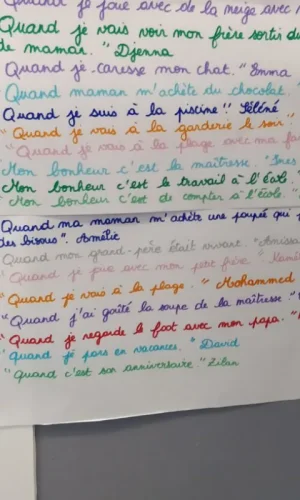 Quand je joue avec de la neige avec m
Quand je vais voir mon frère sorti du
de maman." Djenna
Quand je caresse mon chat." Emma
Quand maman m'achète du chocolat.
Quand je suis à la piscine!" Séléné
"Quand je vais à la garderie le soir"
"Quand je vais à la plage avec ma fa
"Mon bonheur c'est la maîtresse. "Ines
"Mon bonheur c'est le travail à l'école
"Mon bonheur c'est de compter à l'école."
Quand ma maman m'achète une poupée qui
des bisous". Armélie
Quand mon grand-père était vivant.
"Quand je joue avec mon petit frère."
"Quand je vais à la plage. " Mohammed
"Quand j'ai goûté la soupe de la maîtresse."
"Quand je regarde le foot avec mon papa."
"Quand je pars en vacances. " David
"Quand c'est son anniversaire "Zilan